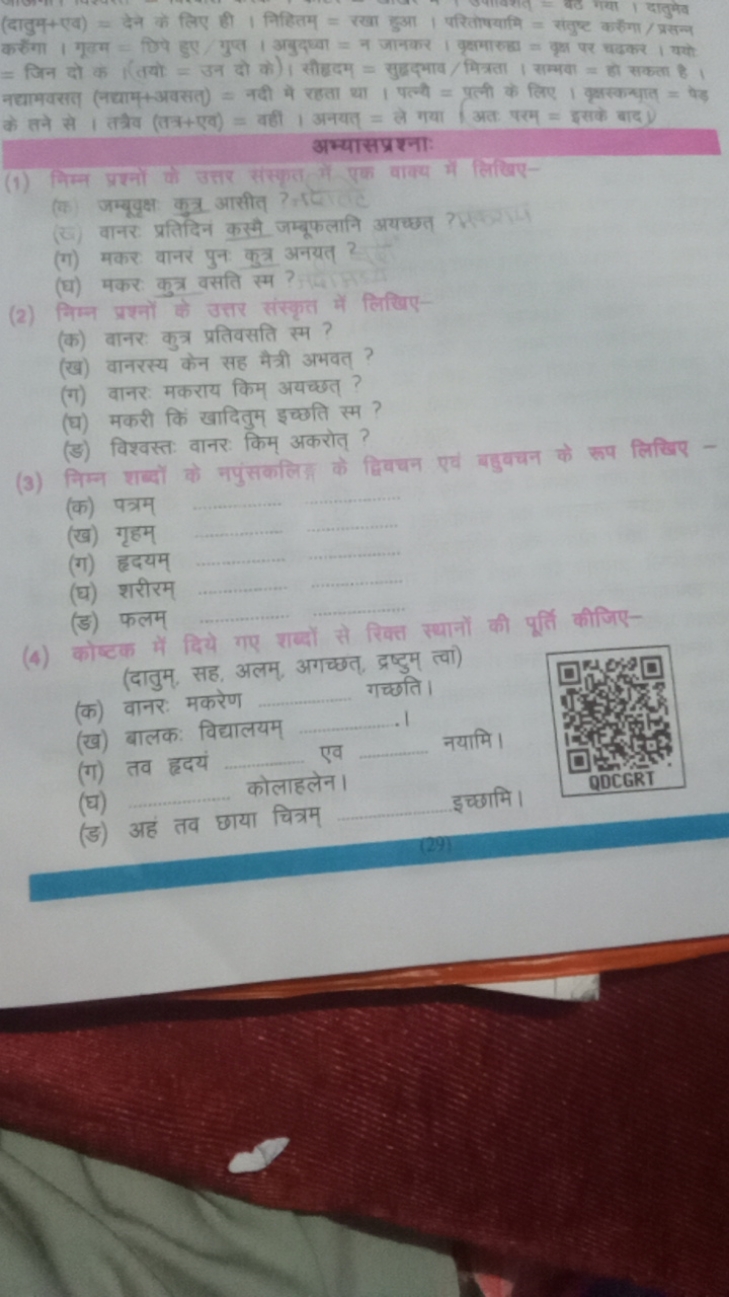 = बैठ गया । दातुमेव
(दातुम्+एव) = देने के लिए ही । निहितम् = रखा हुआ । परितोषयामि = संतुष्ट करुँगा / प्रसन्न
करुँगा । गूढम् = छिपे हुए / गुप्त । अबुद्ध्वा = न जानकर । वृक्षमारुह्य = वृक्ष पर चढ़कर । ययोः
= जिन दो के । (तयोः = उन दो के) । सौहृदम् = सुहृद्भाव / मित्रता । सम्भवः = हो सकता है ।
नद्यामवसत् (नद्याम्+अवसत्) = नदी में रहता था । पत्न्यै = पत्नी के लिए । वृक्षस्कन्धात् = पेड़
के तने से । तत्रैव (तत्र+एव) = वहीं । अनयत् = ले गया । (अतः परम् = इसके बाद)
अभ्यासप्रश्नाः
(1) निम्न प्रश्नों के उत्तर संस्कृत में एक वाक्य में लिखिए–
(क) जम्बूवृक्षः कुत्र आसीत् ?
(ख) वानरः प्रतिदिनं कस्मै जम्बूफलानि अयच्छत् ?
(ग) मकरः वानरं पुनः कुत्र अनयत् ?
(घ) मकरः कुत्र वसति स्म ?
(2) निम्न प्रश्नों के उत्तर संस्कृत में लिखिए–
(क) वानरः कुत्र प्रतिवसति स्म ?
(ख) वानरस्य केन सह मैत्री अभवत् ?
(ग) वानरः मकराय किम् अयच्छत् ?
(घ) मकरी किं खादितुम् इच्छति स्म ?
(ङ) विश्वस्तः वानरः किम् अकरोत् ?
(3) निम्न शब्दों के नपुंसकलिङ्ग के द्विवचन एवं बहुवचन के रूप लिखिए –
(क) पत्रम् .................. ..................
(ख) गृहम् .................. ..................
(ग) हृदयम् .................. ..................
(घ) शरीरम् .................. ..................
(ङ) फलम् .................. ..................
(4) कोष्टक में दिये गए शब्दों से रिक्त स्थानों की पूर्ति कीजिए–
(दातुम्, सह, अलम्, अगच्छत्, द्रष्टुम् त्वां)
(क) वानरः मकरेण .................. गच्छति।
(ख) बालकः विद्यालयम् ..................।
(ग) तव हृदयं ............... एव ............... नयामि।
(घ) .................. कोलाहलेन।
(ङ) अहं तव छाया चित्रम् .................. इच्छामि।
QDCGRT
(29)